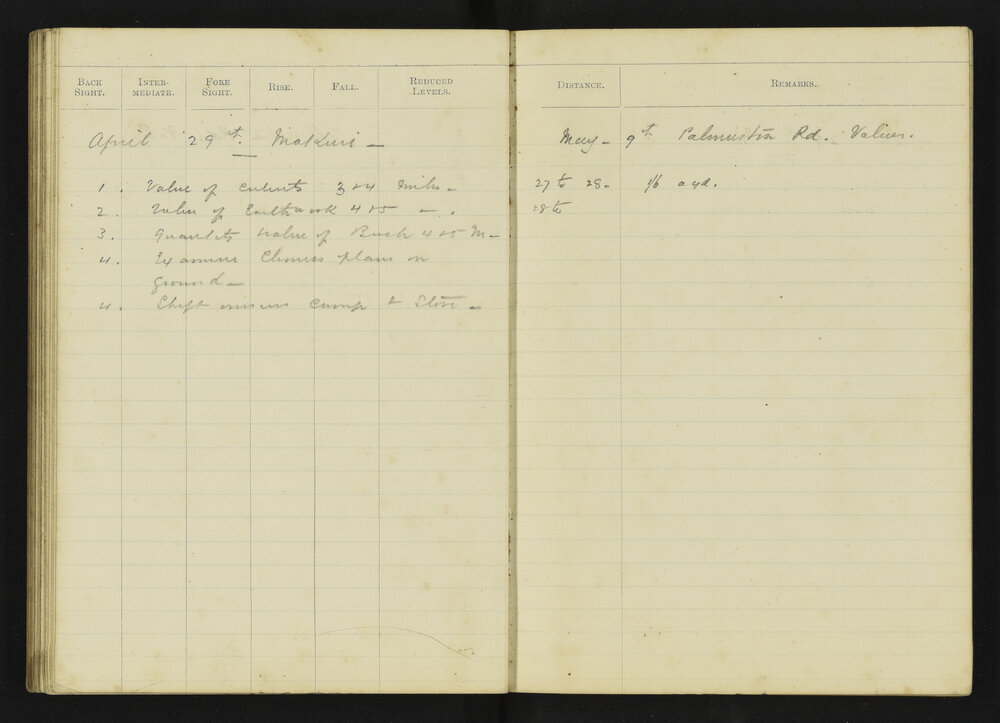 BACK SIGHT. INTER-MEDIATE. FORE SIGHT. RISE. FALL. REDUCED LEVELS.
April 29th. Makuri –
1. Value of culverts 3 & 4 miles –
2. Value of Earthwork 4 & 5 – .
3. value of Bush 4 & 5 M –
4. Examine plan on
ground –
4. Shift camp & Store –
DISTANCE. REMARKS.
May – 9th Palmerston Rd. Values.
27 to 28 – 1/6 a yd.
28 to